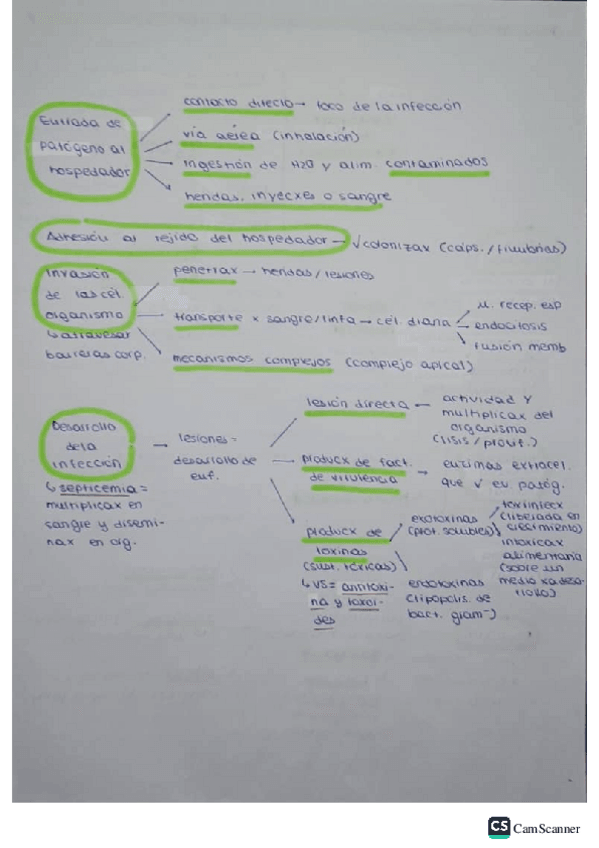 Entrada de
patógeno al
hospedador
contacto directo → foco de la infección
vía aérea (inhalación)
ingestión de H2O y alim. contaminados
heridas, inyecxes o sangre
Adhesión al tejido del hospedador → √colonizax (cáps./fimbrias)
Invasión
de las cél.
organismo
↳ atravesar
barreras corp.
penetrax → heridas/lesiones
transporte x sangre/linfa → cél. diana
recep. esp
endocitosis
fusión memb
mecanismos complejos (complejo apical)
Desarrollo
de la
infección
↳ septicemia =
multiplicax en
sangre y disemi-
nax en org.
→ lesiones =
desarrollo de
enf.
lesión directa → actividad y
multiplicax del
organismo
(lisis/prolif.)
producx de fact.
de virulencia → enzimas extracel.
que √ ev patóg.
producx de
toxinas
(sust. tóxicas)
↳ VS = antitoxi-
na y toxoi-
des
exotoxinas
(prot. solubles)
toxiinfecx
(liberada en
crecimiento)
intoxicax
alimentaria
(sobre un
medio
endotoxinas
(lipopolis. de
bact. gram-)
CS CamScanner